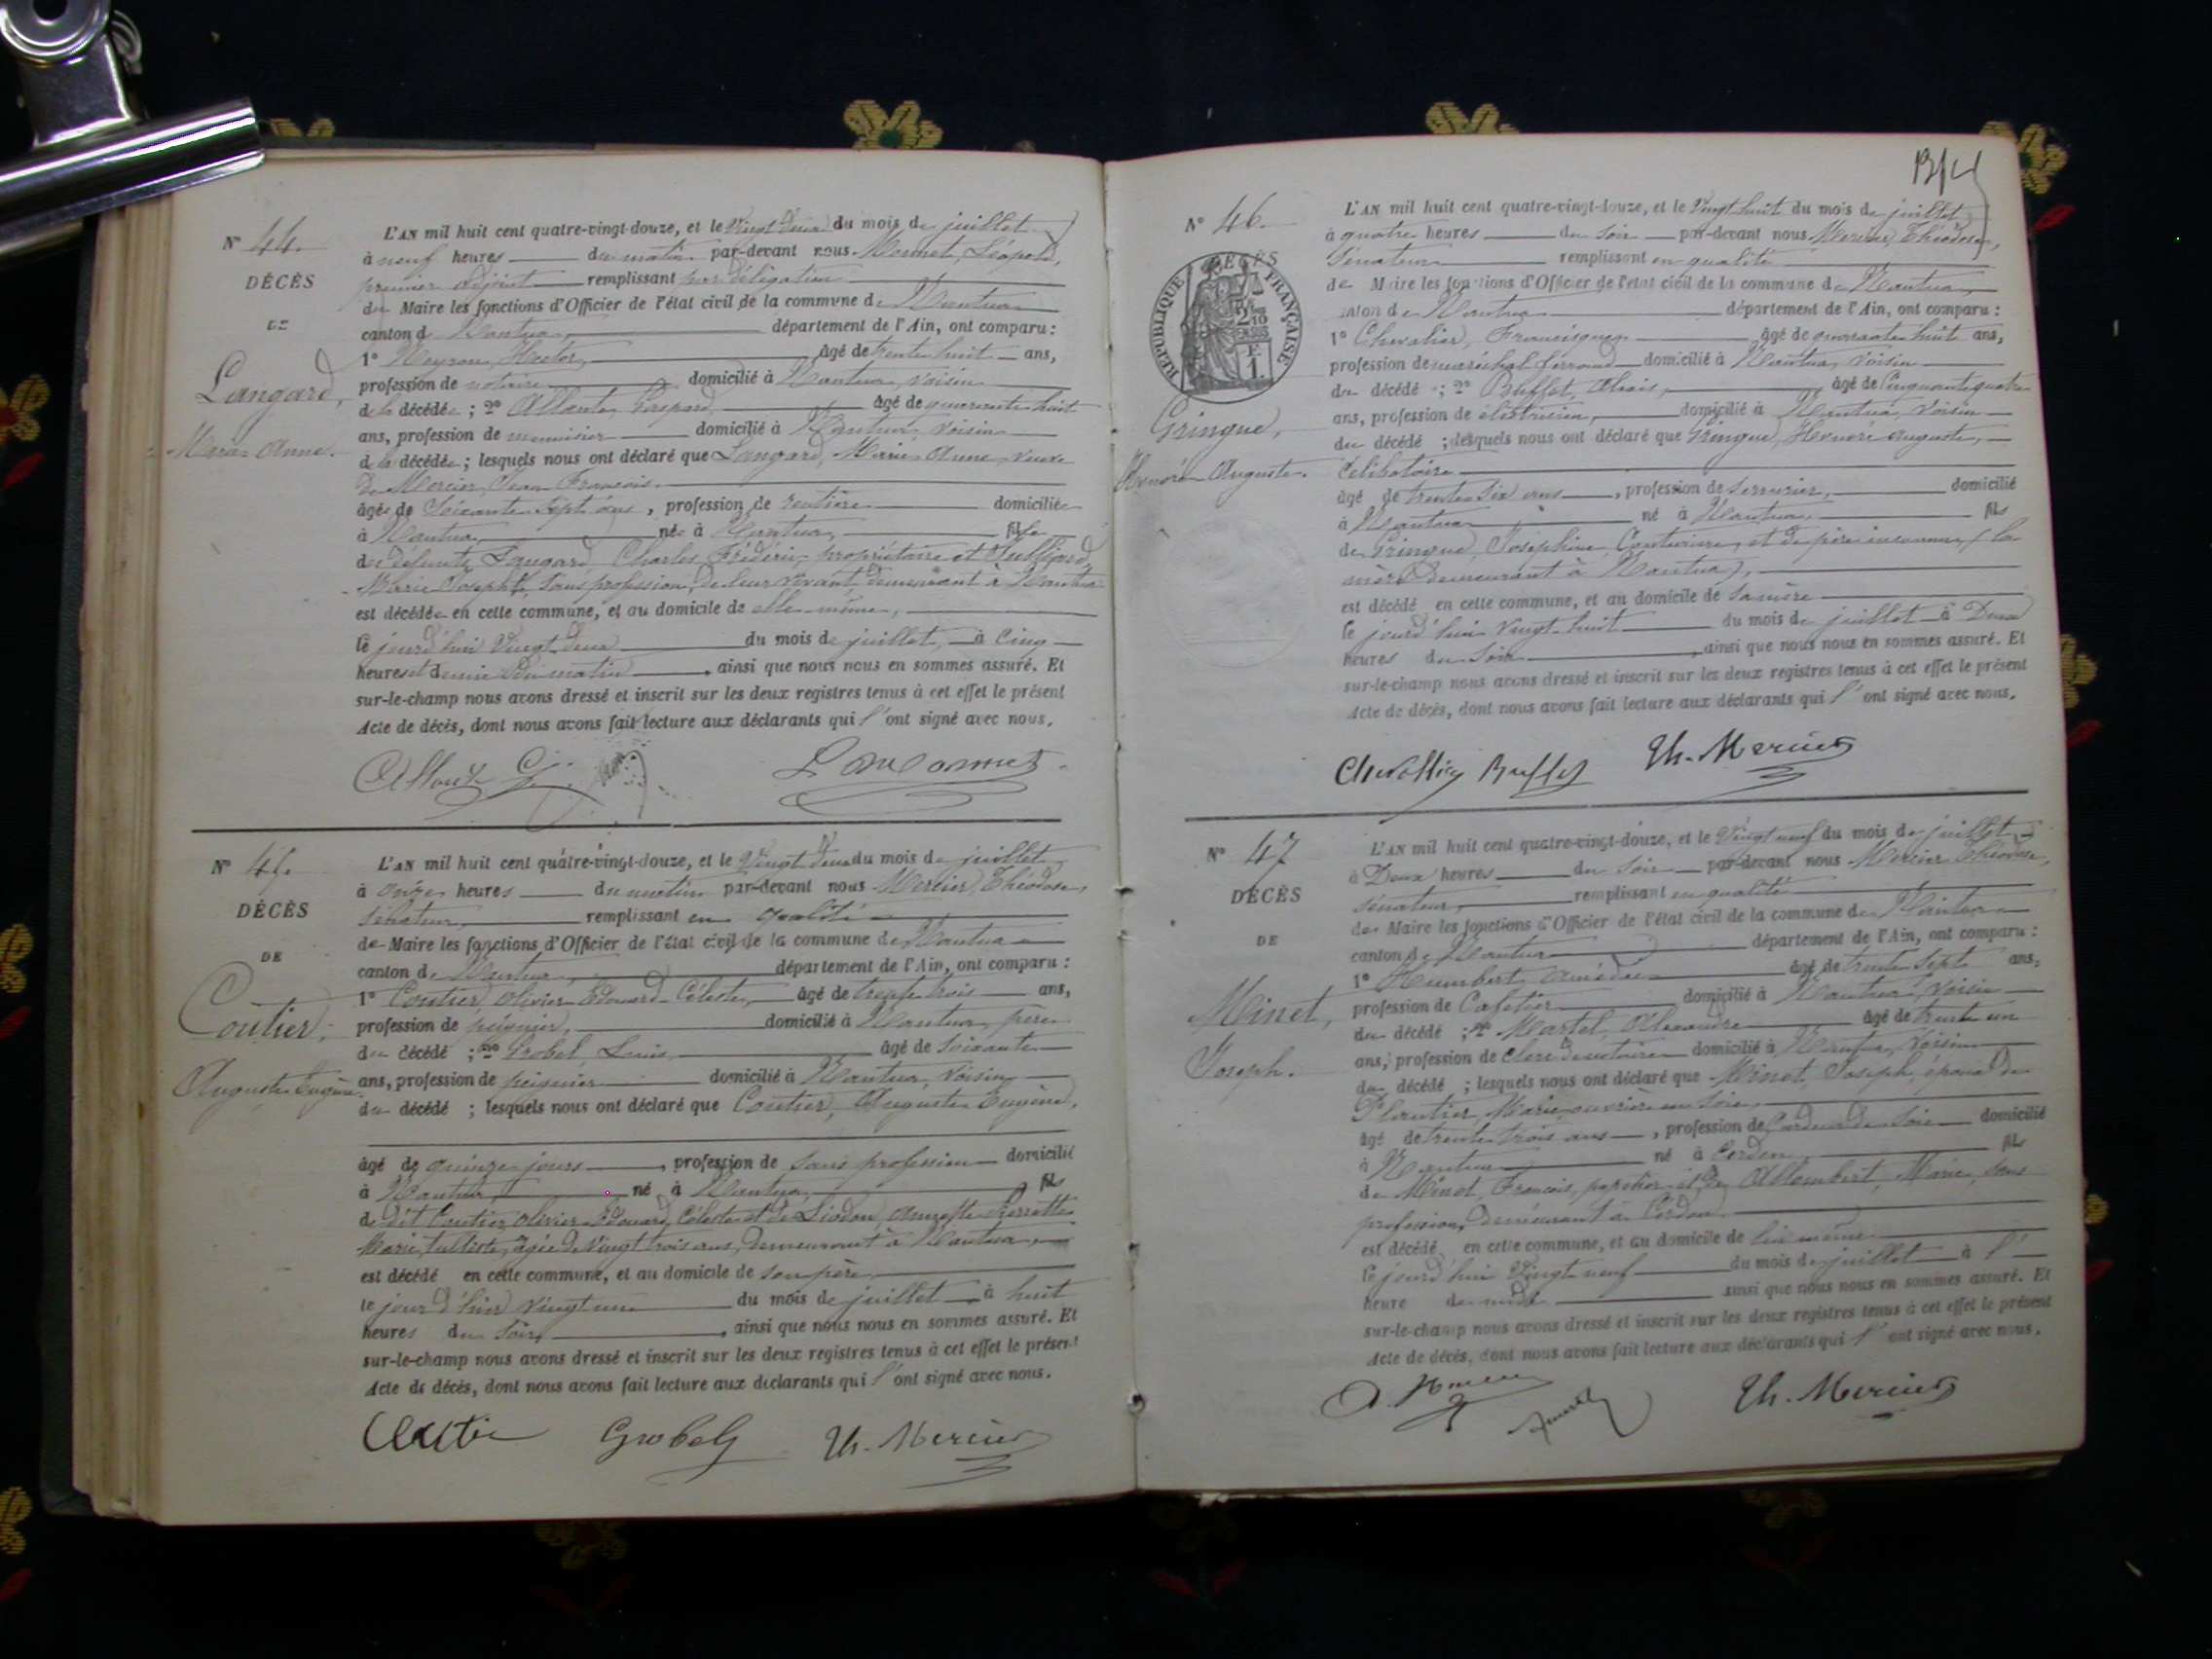 N° 44.
DÉCÈS
DE
Langard,
Marie Anne.
L'AN mil huit cent quatre-vingt-douze, et le Vingt deux du mois de juillet
à neuf heures du matin par-devant nous Monnet, Léopold,
premier adjoint remplissant par délégation
du Maire les fonctions d'Officier de l'état civil de la commune de Nantua
canton de Nantua, département de l'Ain, ont comparu :
1° Neyron, Hector, âgé de trente huit ans,
profession de notaire domicilié à Nantua, voisin
de la décédée ; 2° Allante, Gaspard, âgé de quarante huit
ans, profession de menuisier domicilié à Nantua, voisin
de la décédée ; lesquels nous ont déclaré que Langard, Marie Anne, veuve
de Mercier, Jean François.
âgée de Soixante Sept ans, profession de rentière domiciliée
à Nantua, née à Nantua, fille
de défunts Langard, Charles Frédéric, propriétaire et
Marie Josephte, Sans profession, de leur vivant demeurant à Nantua
est décédée en cette commune, et au domicile de elle-même,
le jourd'hui Vingt deux du mois de juillet, à Cinq
heures et demie du matin, ainsi que nous nous en sommes assuré. Et
sur-le-champ nous avons dressé et inscrit sur les deux registres tenus à cet effet le présent
Acte de décès, dont nous avons fait lecture aux déclarants qui l'ont signé avec nous.
N° 45.
DÉCÈS
DE
Coutier,
Auguste Eugène.
L'AN mil huit cent quatre-vingt-douze, et le Vingt deux du mois de juillet,
à onze heures du matin par-devant nous Mercier, Théodose,
Sénateur, remplissant en qualité
de Maire les fonctions d'Officier de l'état civil de la commune de Nantua
canton de Nantua, département de l'Ain, ont comparu :
1° Coutier, Olivier Edouard Céleste, âgé de trente trois ans,
profession de peignier, domicilié à Nantua, père
du décédé ; 2° Grobel, Louis, âgé de Soixante
ans, profession de peignier domicilié à Nantua, voisin
du décédé ; lesquels nous ont déclaré que Coutier, Auguste Eugène,
âgé de quinze jours, profession de sans profession domicilié
à Nantua, né à Nantua, fils
de dit Coutier, Olivier Edouard, Céleste et de Liodon, Annette Pierrette
Marie, âgée de Vingt trois ans, demeurant à Nantua,
est décédé en cette commune, et au domicile de son père,
le jour d'hier vingt un du mois de juillet, à huit
heures du Soir, ainsi que nous nous en sommes assuré. Et
sur-le-champ nous avons dressé et inscrit sur les deux registres tenus à cet effet le présent
Acte de décès, dont nous avons fait lecture aux déclarants qui l'ont signé avec nous.
Grobel Th. Mercier
N° 46.
DÉCÈS
RÉPUBLIQUE FRANÇAISE
Gringue,
Honoré Auguste.
L'AN mil huit cent quatre-vingt-douze, et le Vingt huit du mois de juillet
à quatre heures du Soir par-devant nous Mercier, Théodose,
Sénateur remplissant en qualité
de Maire les fonctions d'Officier de l'état civil de la commune de Nantua,
canton de Nantua département de l'Ain, ont comparu :
1° Chevalier, Francisque, âgé de quarante huit ans,
profession de maréchal ferrand domicilié à Nantua, voisin
du décédé ; 2° Buffet, Alexis, âgé de Cinquante quatre
ans, profession de électricien, domicilié à Nantua, voisin
du décédé ; lesquels nous ont déclaré que Gringue, Honoré Auguste,
Célibataire
âgé de trente six ans, profession de Serrurier, domicilié
à Nantua né à Nantua, fils
de Gringue, Joséphine, Couturière, et de père inconnu, (la
mère demeurant à Nantua),
est décédé en cette commune, et au domicile de sa mère
le jourd'hui Vingt huit du mois de juillet à Deux
heures du Soir, ainsi que nous nous en sommes assuré. Et
sur-le-champ nous avons dressé et inscrit sur les deux registres tenus à cet effet le présent
Acte de décès, dont nous avons fait lecture aux déclarants qui l'ont signé avec nous.
Buffet Th. Mercier
N° 47
DÉCÈS
DE
Minet,
Joseph.
L'AN mil huit cent quatre-vingt-douze, et le Vingt neuf du mois de juillet
à Deux heures du Soir par-devant nous Mercier Théodose,
sénateur, remplissant en qualité
de Maire les fonctions d'Officier de l'état civil de la commune de Nantua
canton de Nantua département de l'Ain, ont comparu :
1° Humbert, Amédée âgé de trente Sept ans,
profession de Cafetier domicilié à Nantua, voisin
du décédé ; 2° Martel, Alexandre âgé de trente un
ans, profession de Clerc de notaire domicilié à Nantua, voisin
du décédé ; lesquels nous ont déclaré que Minet, Joseph, époux de
Plantier, Marie, ouvrière en Soie,
âgé de trente trois ans, profession de Cardeur de Soie domicilié
à Nantua né à Cerdon, fils
de Minet, François, papetier et de Allombert, Marie, sans
profession, demeurant à Cerdon
est décédé en cette commune, et au domicile de lui même
le jourd'hui Vingt neuf du mois de juillet à l'
heure de midi ainsi que nous nous en sommes assuré. Et
sur-le-champ nous avons dressé et inscrit sur les deux registres tenus à cet effet le présent
Acte de décès, dont nous avons fait lecture aux déclarants qui l'ont signé avec nous.
Th. Mercier